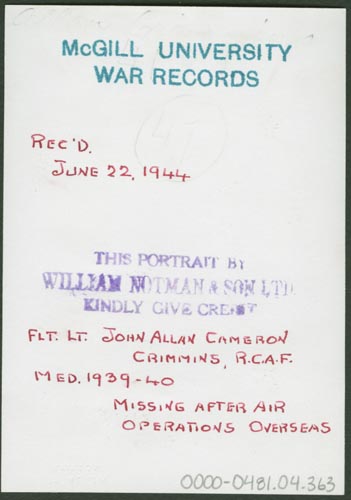 McGILL UNIVERSITY
WAR RECORDS
47
REC'D.
JUNE 22, 1944
THIS PORTRAIT BY
WILLIAM NOTMAN & SON LTD.
KINDLY GIVE CREDIT
FLT. LT. JOHN ALLAN CAMERON
CRIMMINS, R.C.A.F.
MED. 1939-40
MISSING AFTER AIR
OPERATIONS OVERSEAS
0000-0481.04.363